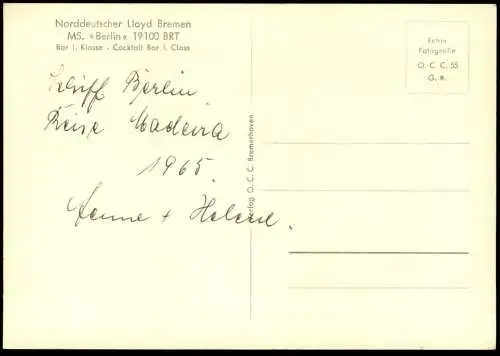 Norddeutscher Lloyd Bremen
MS. »Berlin« 19100 BRT
Bar I. Klasse - Cocktail Bar I. Class
Echte
Fotografie
O. C. C. 55
G. e.
Schiff Berlin.
Reise Madeira
1965.
Hanne + Helene.
Verlag O. C. C. Bremerhaven